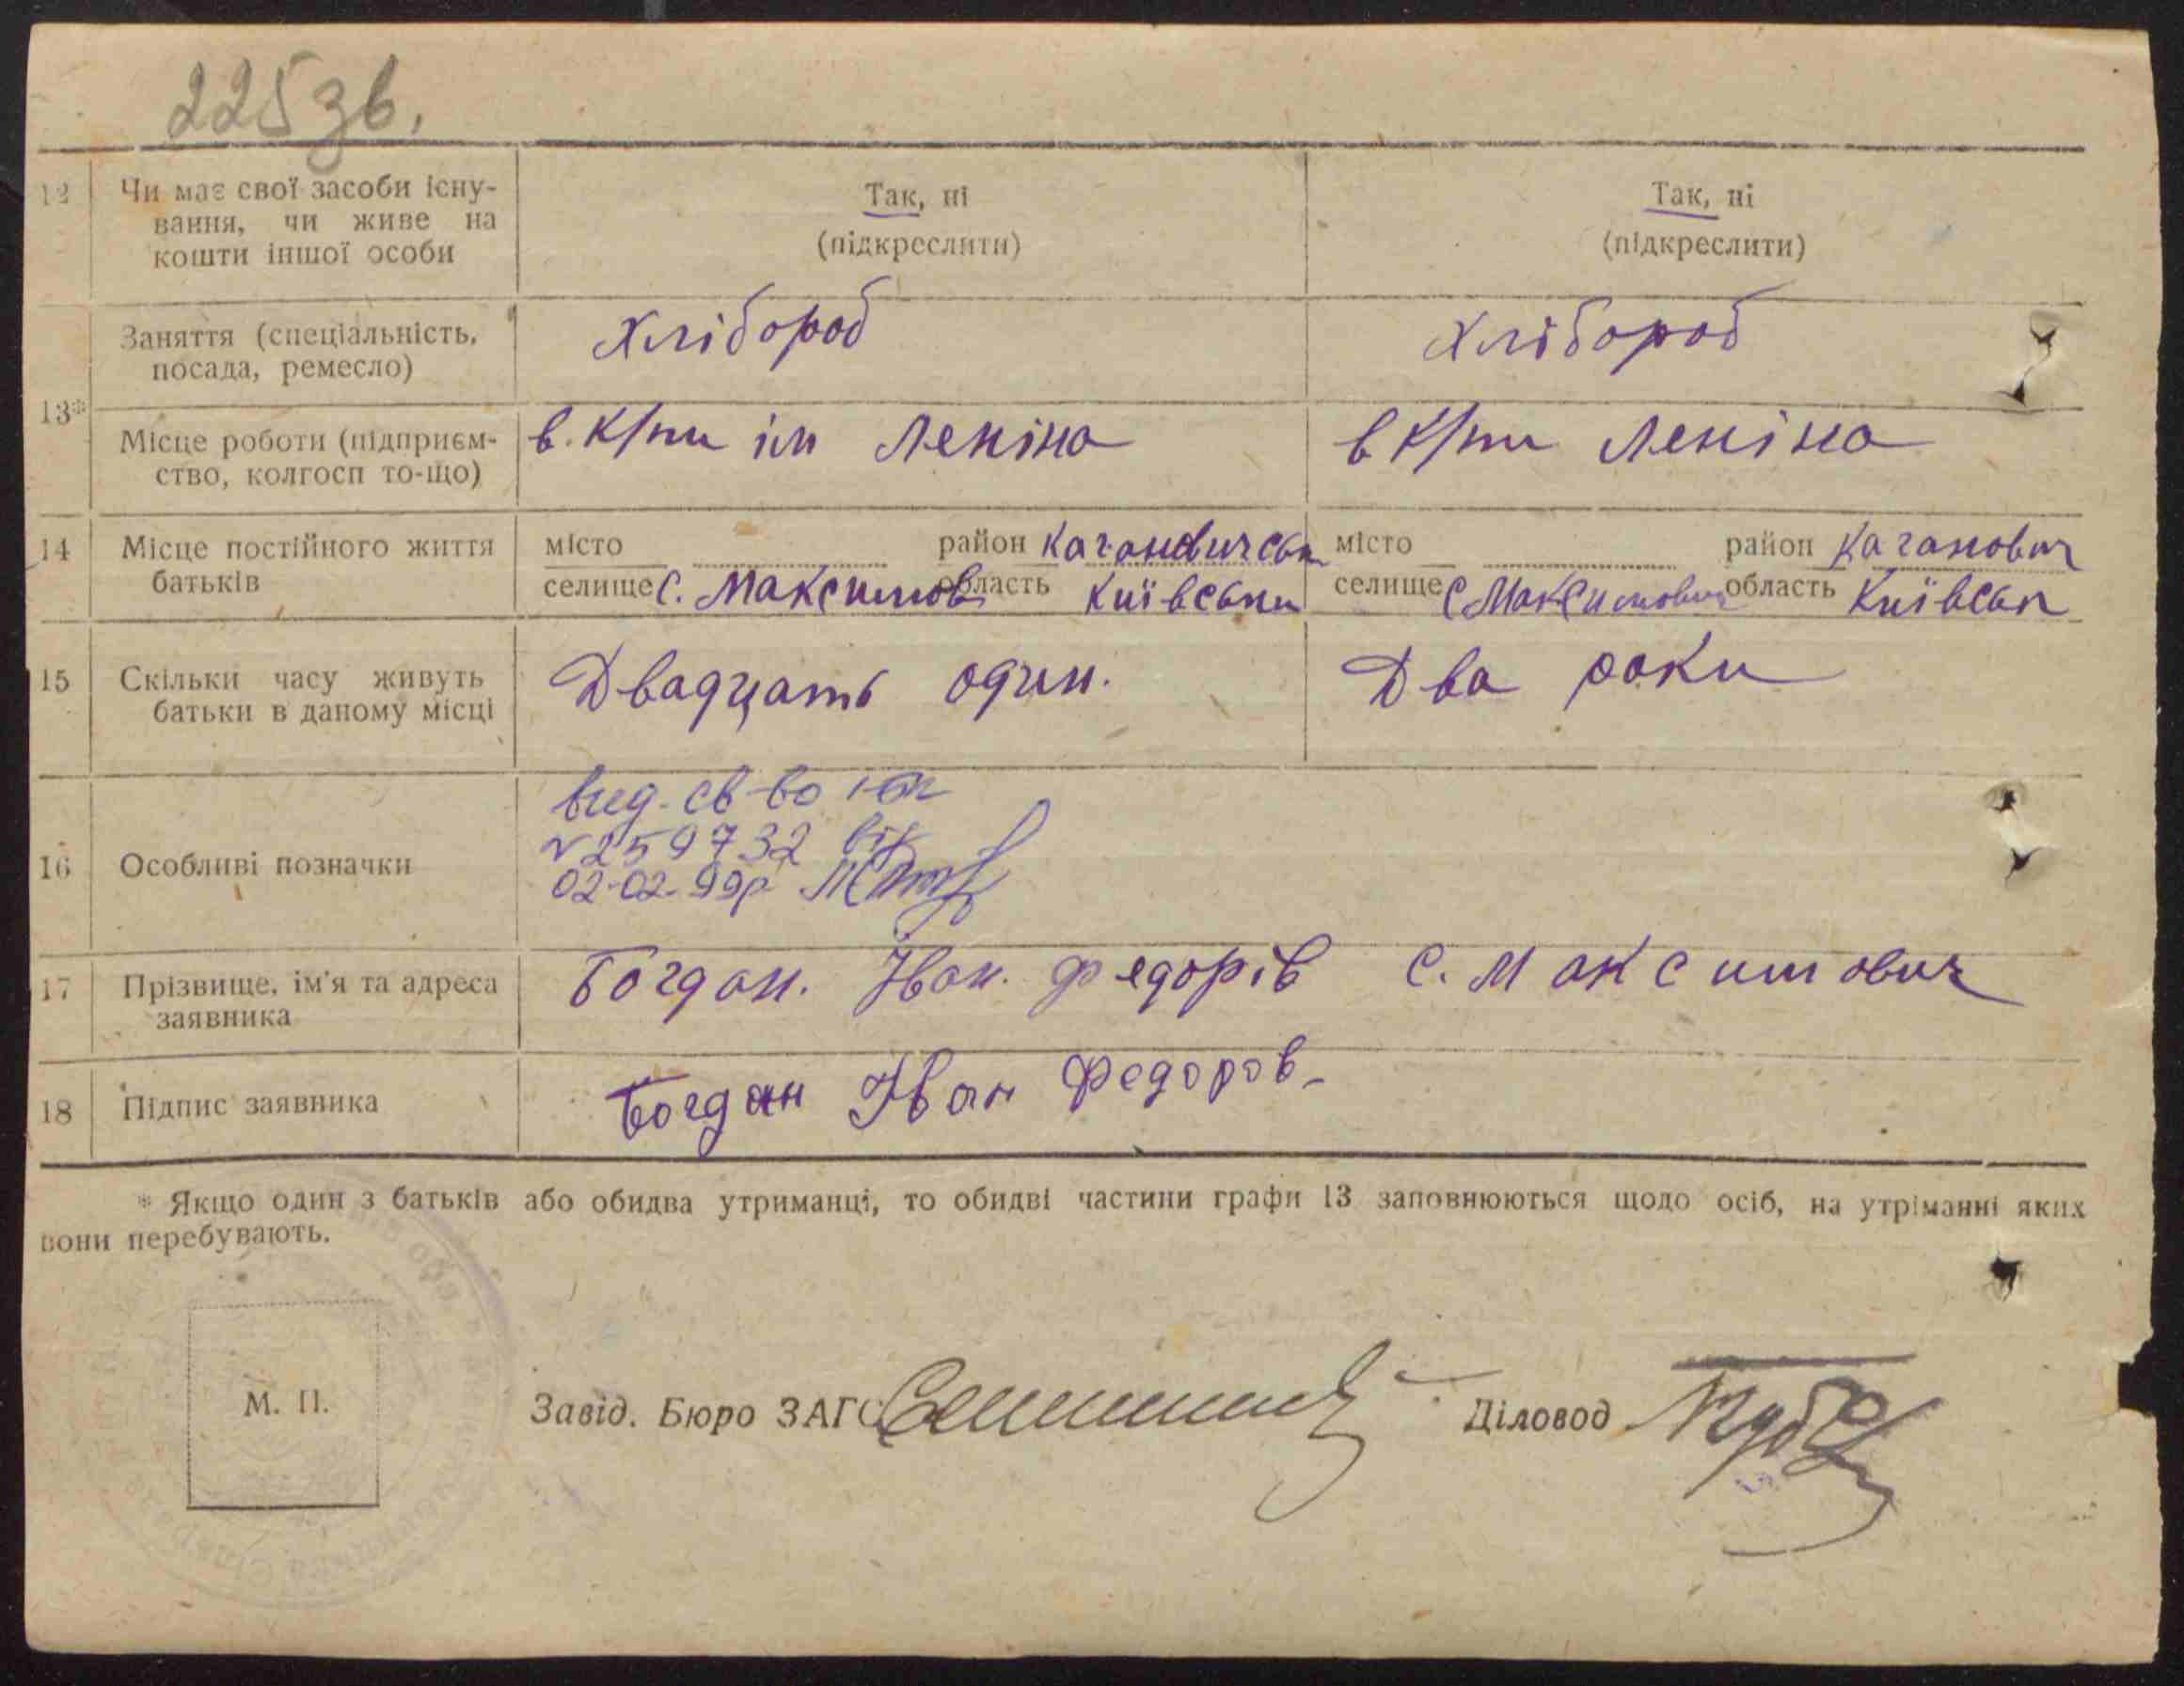 225 зв.
12 Чи має свої засоби існу-
вання, чи живе на
кошти іншої особи
Так, ні
(підкреслити)
Так, ні
(підкреслити)
13*
Заняття (спеціальність,
посада, ремесло)
Хлібороб
Хлібороб
Місце роботи (підприєм-
ство, колгосп то-що)
в. к/пи ім Леніна
в к/пи Леніна
14 Місце постійного життя
батьків
місто район Кагановичськ
селище С. Максимов область Київськи
місто район Каганович
селище С Максимович область Київськ
15 Скільки часу живуть
батьки в даному місці
Двадцять один.
Два роки
16 Особливі позначки
вид. св-во
N 259732 від
02-02-99р
17 Прізвище, ім'я та адреса
заявника
Богдан. Іван. Федорів С. Максимович
18 Підпис заявника
Богдан Іван Федоров-
* Якщо один з батьків або обидва утриманці, то обидві частини графи 13 заповнюються щодо осіб, на утріманні яких
вони перебувають.
М. П.
Завід. Бюро ЗАГС
Діловод